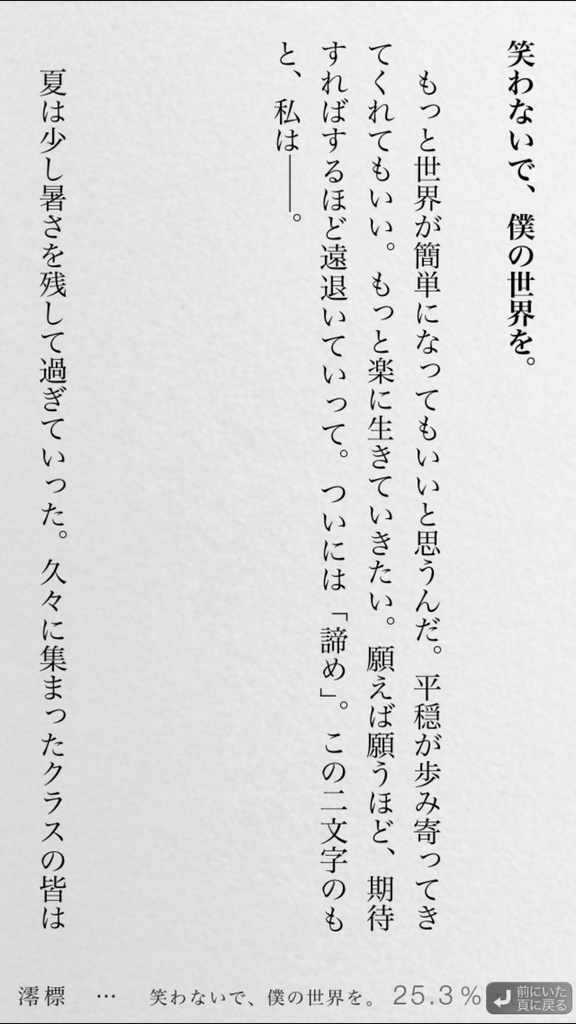 笑わないで、僕の世界を。
もっと世界が簡単になってもいいと思うんだ。平穏が歩み寄ってき
てくれてもいい。もっと楽に生きていきたい。願えば願うほど、期待
すればするほど遠退いていって。ついには「諦め」。この二文字のも
と、私は――。
夏は少し暑さを残して過ぎていった。久々に集まったクラスの皆は
澪標 … 笑わないで、僕の世界を。 25.3%
前にいた
頁に戻る